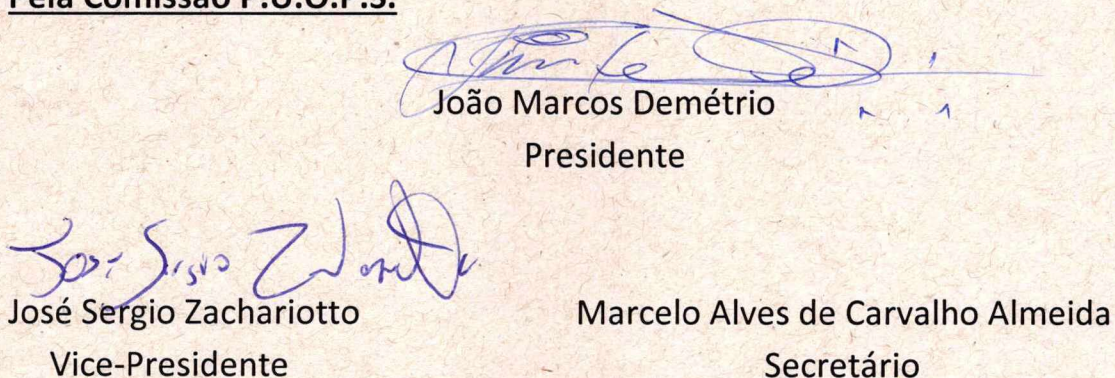 Pela Comissão P.U.O.P.S.
João Marcos Demétrio
Presidente
José Sergio Zachariotto
Vice-Presidente
Marcelo Alves de Carvalho Almeida
Secretário